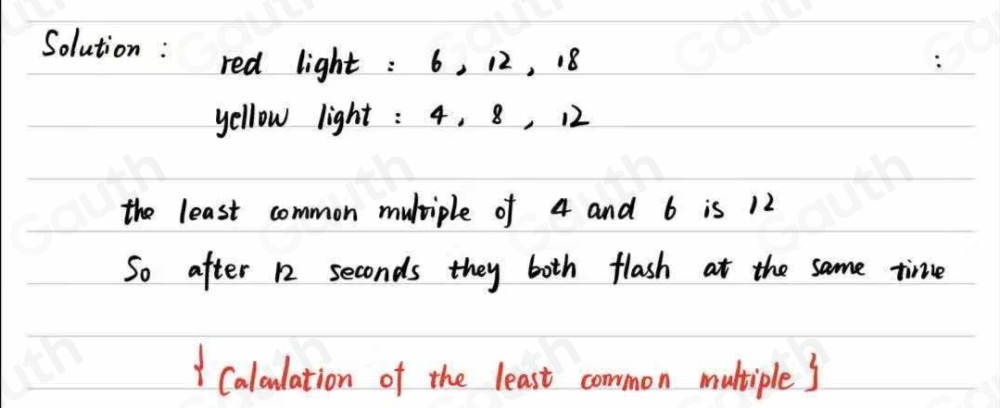 Solution :
red light : 6, 12, 18 :
yellow light : 4, 8, 12
the least common multiple of 4 and 6 is 12
So after 12 seconds they both flash at the same time
{ Calculation of the least common multiple }